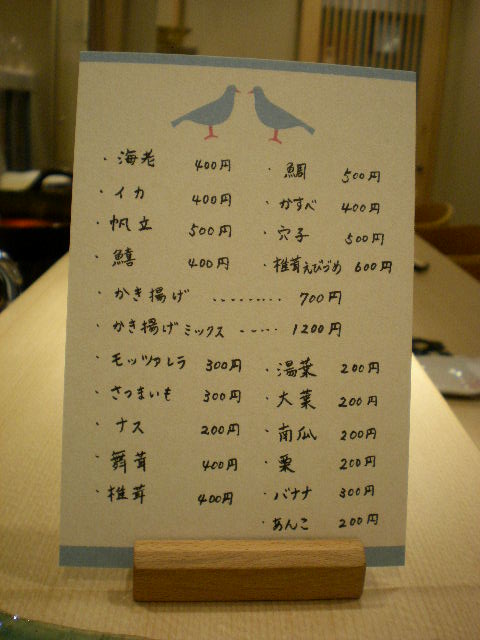 ・海老 400円
・イカ 400円
・帆立 500円
・鱚 400円
・鯛 500円
・かすべ 400円
・穴子 500円
・椎茸えびづめ 600円
・かき揚げ ‥‥‥‥‥ 700円
・かき揚げミックス ‥‥‥ 1200円
・モッツァレラ 300円
・さつまいも 300円
・ナス 200円
・舞茸 400円
・椎茸 400円
・湯葉 200円
・大葉 200円
・南瓜 200円
・栗 200円
・バナナ 300円
・あんこ 200円